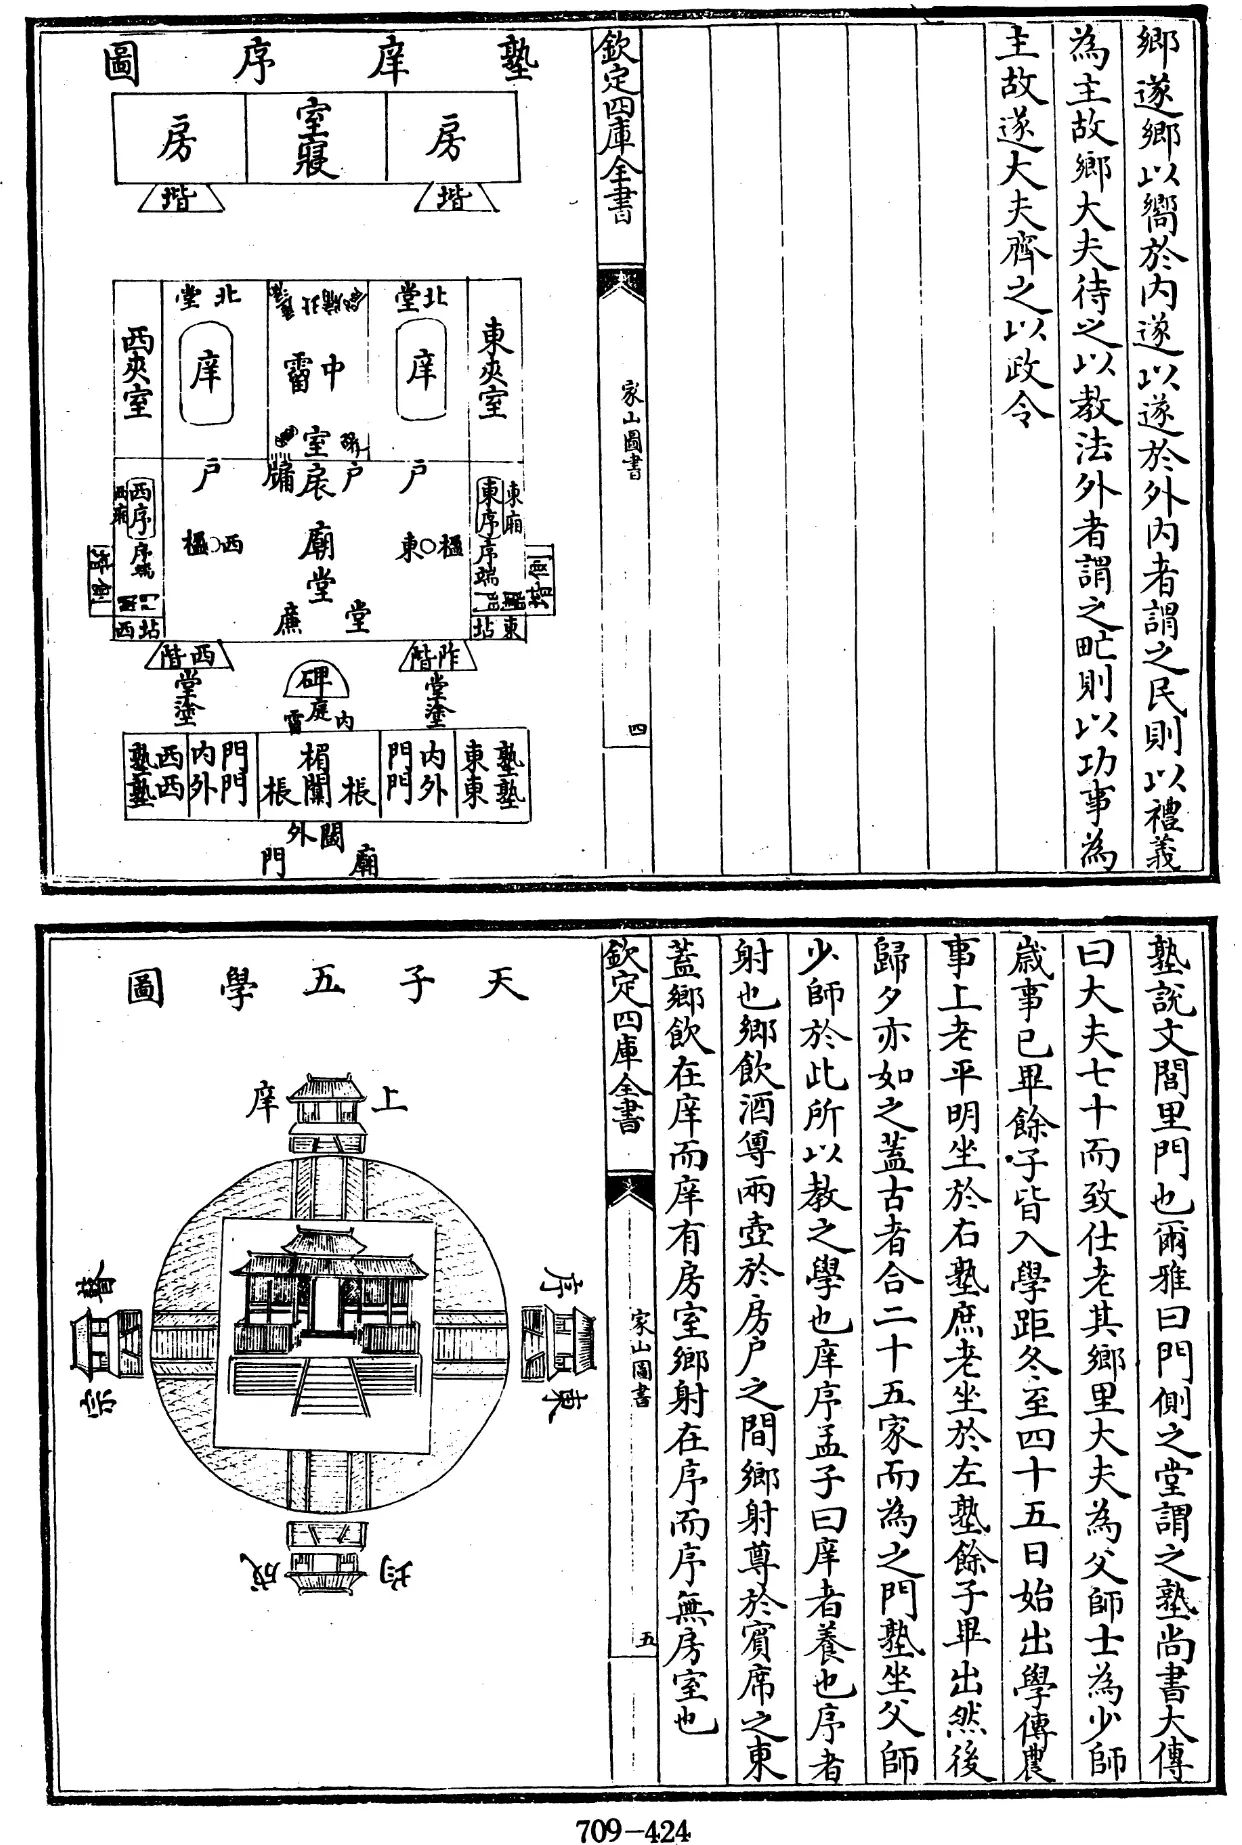 鄉遂鄉以嚮於内遂以遂於外内者謂之民則以禮義
為主故鄉大夫待之以教法外者謂之甿則以功事為
主故遂大夫齊之以政令
欽定四庫全書
家山圖書
四
塾庠序圖
房
室寢
房
階
階
北堂
北堂
東夾室
庠
中霤
庠
西夾室
室
戶
戶
扆
牖
戶
東廂
東序
序端
東楹
廟堂
西楹
西序
序端
西廂
側階
側階
堂廉
東坫
西坫
阼階
西階
堂塗
碑
堂塗
内霤
庭
東塾
東塾
内門
外門
楣
棖闑棖
門内
門外
西塾
西塾
閾外
廟門
塾說文閭里門也爾雅曰門側之堂謂之塾尚書大傳
曰大夫七十而致仕老其鄉里大夫為父師士為少師
歲事已畢餘子皆入學距冬至四十五日始出學傳農
事上老平明坐於右塾庶老坐於左塾餘子畢出然後
歸夕亦如之蓋古者合二十五家而為之門塾坐父師
少師於此所以教之學也庠序孟子曰庠者養也序者
射也鄉飲酒尊兩壺於房戶之間鄉射尊於賓席之東
蓋鄉飲在庠而庠有房室鄉射在序而序無房室也
欽定四庫全書
家山圖書
五
天子五學圖
上庠
東序
瞽宗
成均
709-424